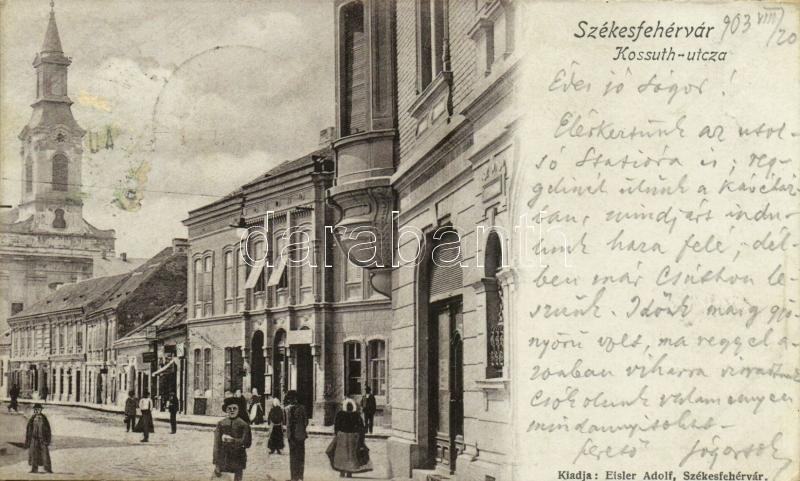 Székesfehérvár
Kossuth-utcza
903 VIII/20
Édes jó Sógor!
Elérkeztünk az utol-
só Statióra is; reg-
gelinél ülünk a kávéház
ban, mindjárt indu-
lunk haza felé, dél-
ben már
szünk. Időnk máig gyö-
nyörű volt, ma reggel a-
zonban viharra
Csókolunk valamennyien
mindannyitokat
szerető
darabanth
Kiadja: Eisler Adolf, Székesfehérvár.